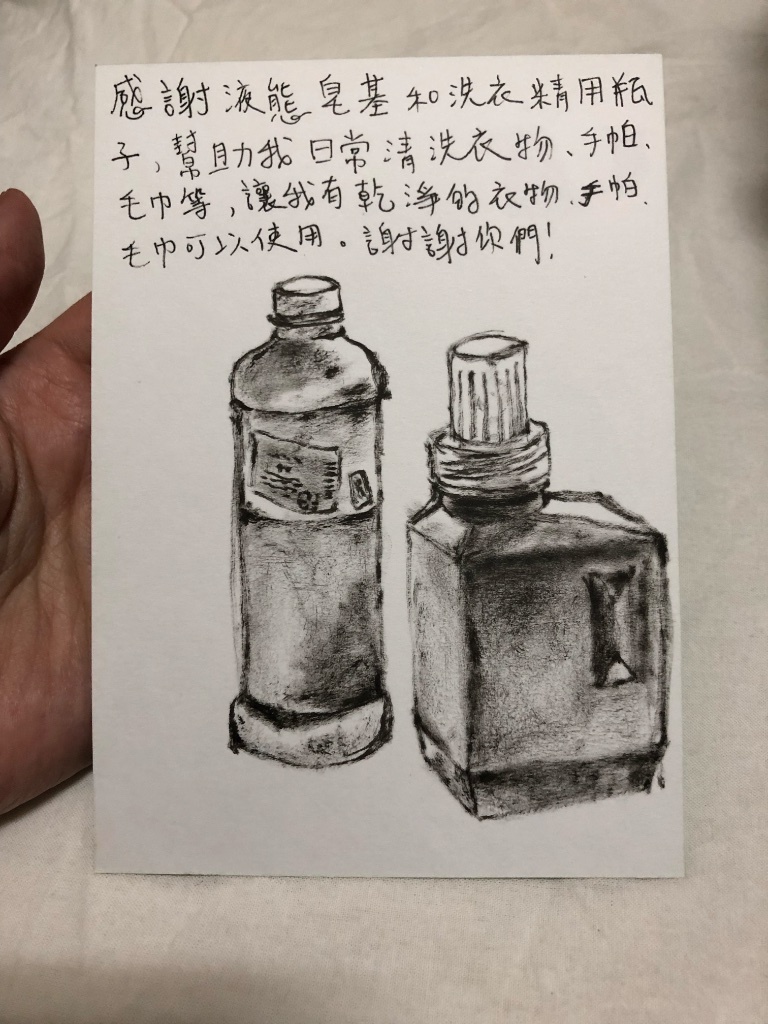 感謝液態皂基和洗衣精用瓶
子,幫助我日常清洗衣物、手帕、
毛巾等,讓我有乾淨的衣物、手帕、
毛巾可以使用。謝謝你們!